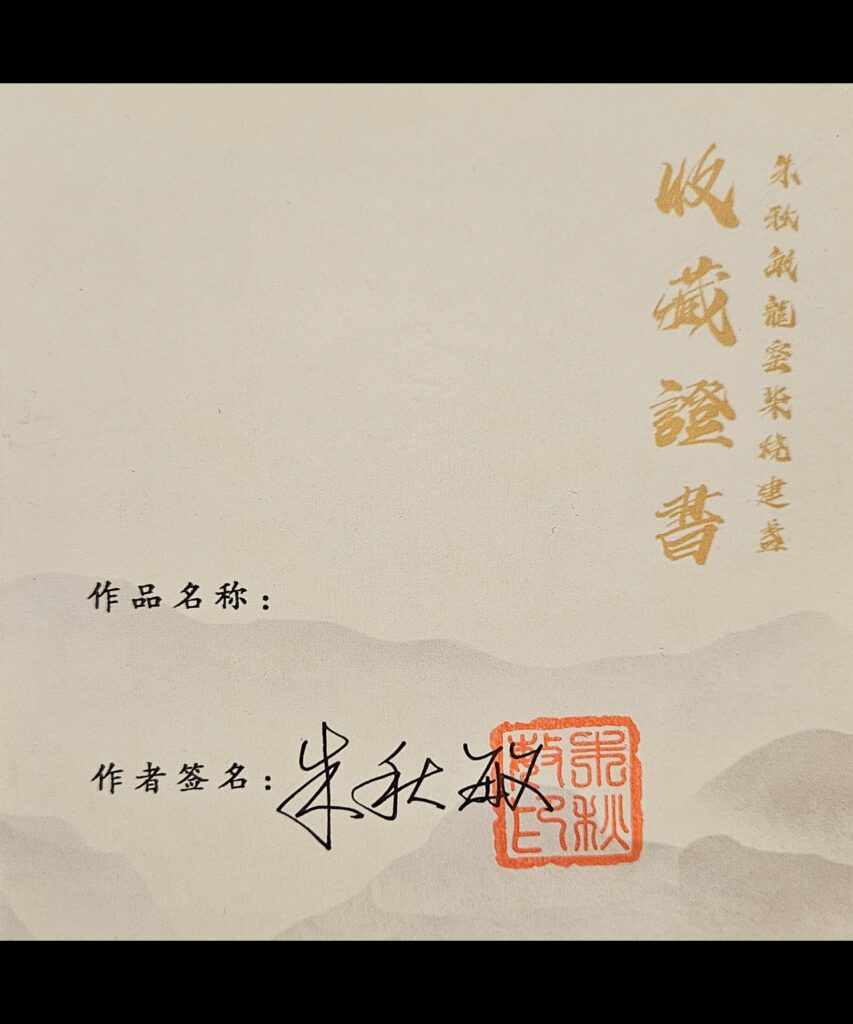 朱秋敏龍窑柴烧建盏
收藏證書
作品名称：
作者签名：朱秋敏
朱秋敏印